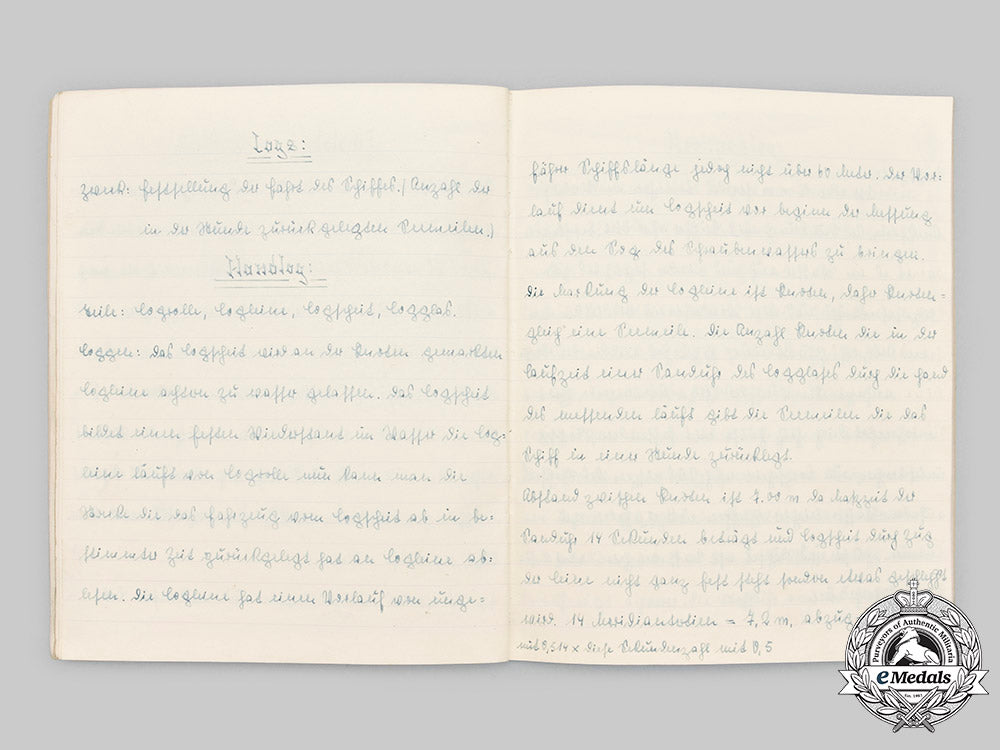 Logs:
Zweck: Feststellung der Fahrt des Schiffes. (Anzahl der
in der Stunde zurückgelegten Seemeilen.)
Handlog:
Teile: Logrolle, Logleine, Logscheit, Logglas.
Loggen: Das Logscheit wird an der Knoten gemarkten
Logleine achtern zu Wasser gelassen. Das Logscheit
bildet einen festen Wiederstant im Wasser die Log=
leine läuft von Logrolle nun kann man die
Strecke die das Fahrzeug vom Logscheit ab in be=
stimmter Zeit zurückgelegt hat an Logleine ab=
lesen. Die Logleine hat einen Vorlauf von unge=
fährer Schiffslänge jedoch nicht über 60 Meter. Der Vor=
lauf dient um Logscheit vor beginn der Messung
aus dem Sog des Schraubenwassers zu bringen.
Die Markung der Logleine ist Knoten, daher Knoten=
gleich eine Seemeile. Die Anzahl Knoten die in der
Laufzeit einer Sanduhr des Logglases durch die Hand
des messenden läuft gibt die Seemeilen die das
Schiff in einer Stunde zurücklegt.
Abstand zwischen Knoten ist 7.00 m da Laufzeit der
Sanduhr 14 Sekunden beträgt und Logscheit durch Zug
der Leine nicht ganz fest steht sondern etwas geschleppt
wird. 14 = 7,2 m, abzug
mit 0,514 x diese Sekundenzahl mit 0,5
Purveyors of Authentic Militaria
eMedals